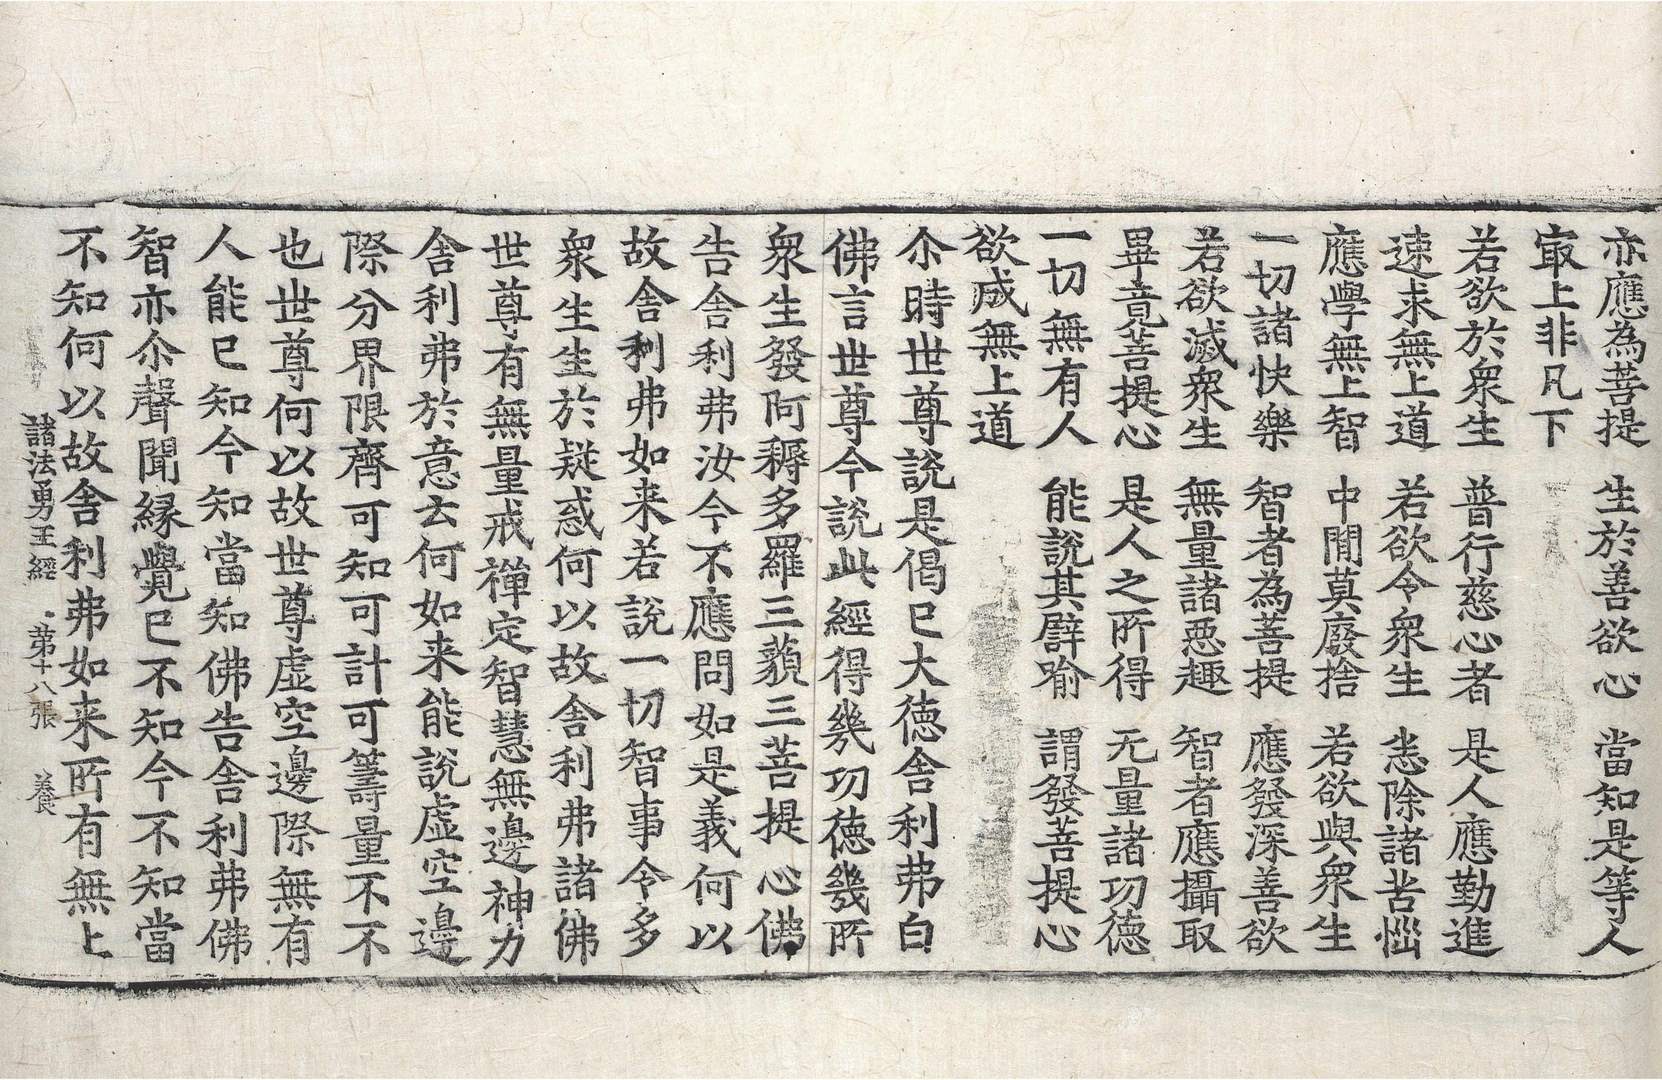 亦應為菩提　生於善欲心　當知是等人
㝡上非凡下
若欲於衆生　普行慈心者　是人應勤進
速求無上道　若欲令衆生　悉除諸苦惱
應學無上智　中間莫廢捨　若欲與衆生
一切諸快樂　智者為菩提　應發深善欲
若欲滅衆生　無量諸惡趣　智者應攝取
畢竟菩提心　是人之所得　无量諸功德
一切無有人　能說其譬喻　謂發菩提心
欲成無上道
尒時世尊說是偈已大德舍利弗白
佛言世尊今說此經得幾功德幾所
衆生發阿耨多羅三藐三菩提心佛
告舍利弗汝今不應問如是義何以
故舍利弗如来若說一切智事令多
衆生生於疑惑何以故舍利弗諸佛
世尊有無量戒禪定智慧無邊神力
舍利弗於意云何如来能說虛空邊
際分界限齊可知可計可籌量不不
也世尊何以故世尊虛空邊際無有
人能已知今知當知佛告舍利弗佛
智亦尒聲聞緣覺已不知今不知當
不知何以故舍利弗如来所有無上
諸法勇王經　第十八張　養